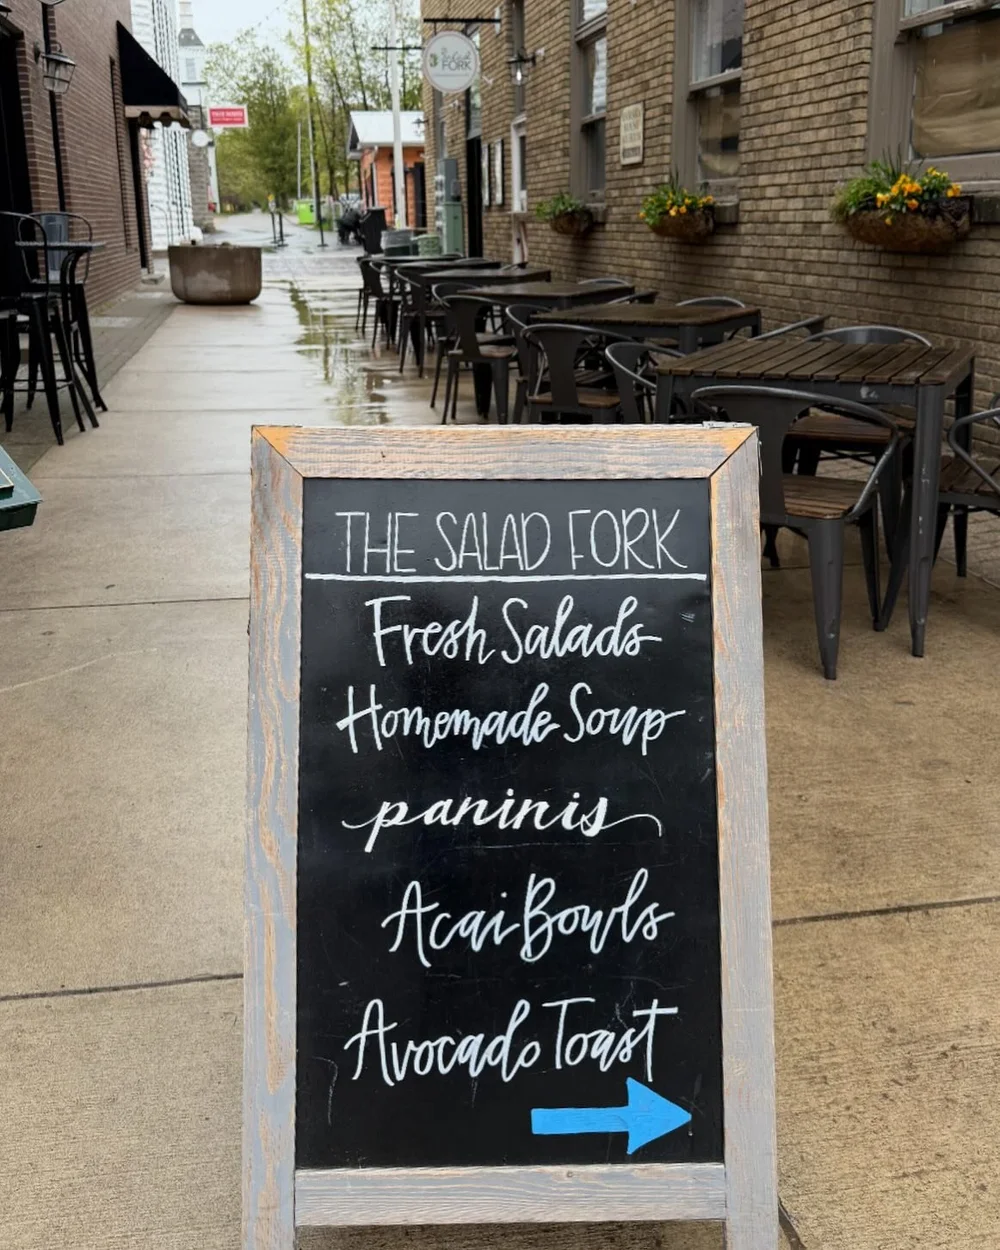 FORK
THE SALAD FORK
Fresh Salads
Homemade Soup
paninis
Acai Bowls
Avocado Toast